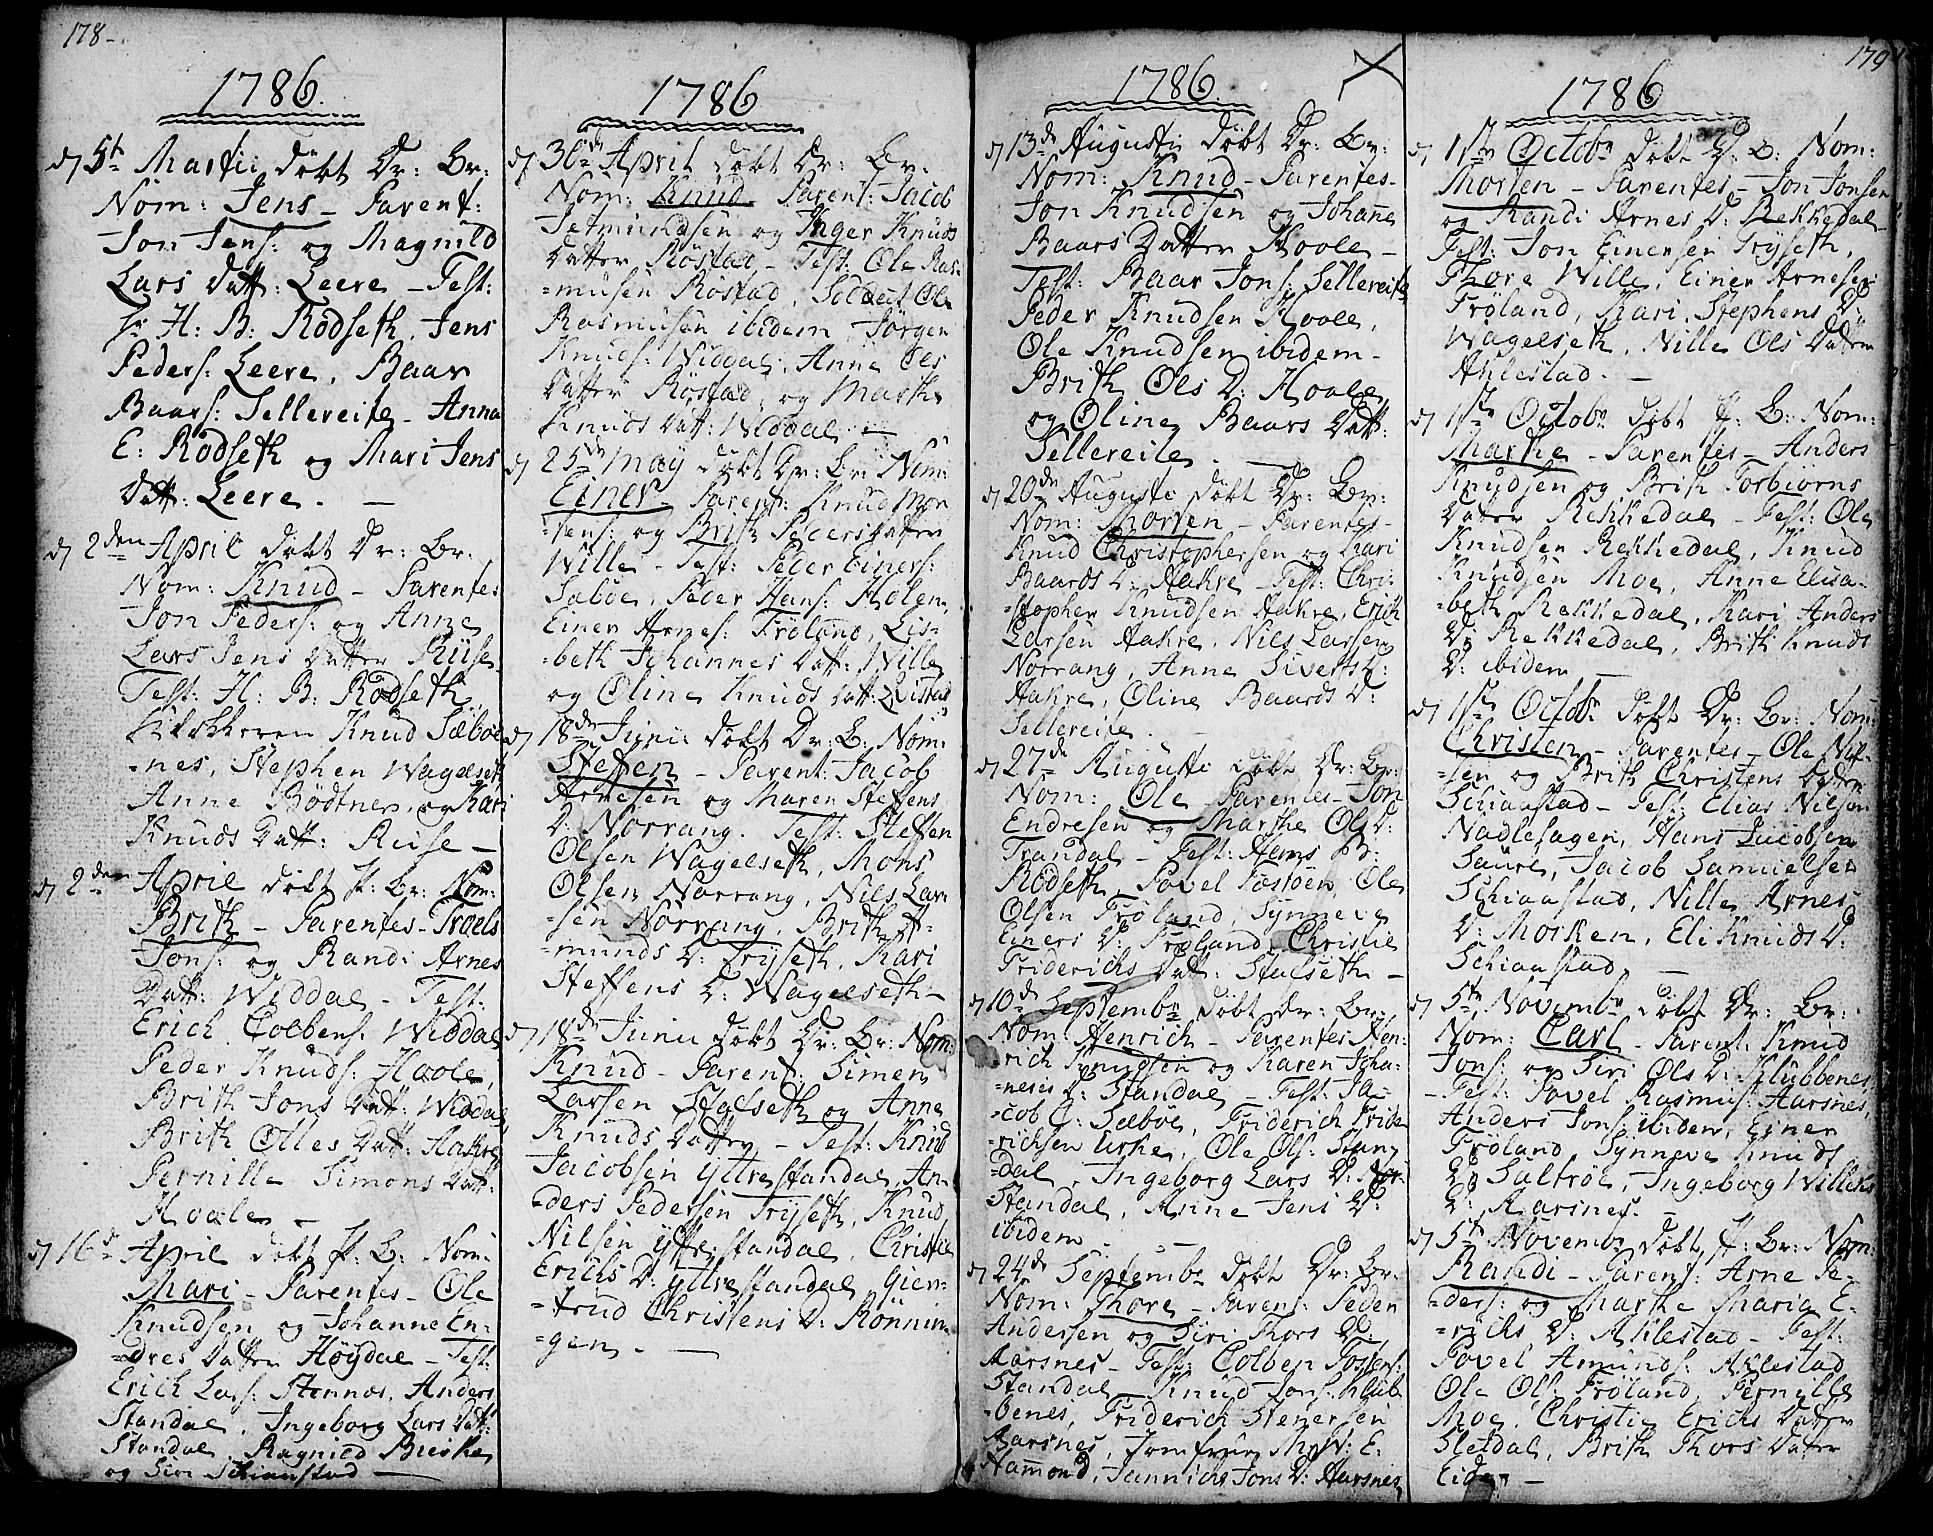 178-
1786.
d 5t Martii döbt Dr: Br:
Nom: Jens - Parent:
Jon Jens: og Magnild
Lars Datt: Leere - Test:
Hr H: B: Rödseth, Jens
Peders: Leere, Baar
Baars: Sellereite - Anna
E: Rödseth og Mari Jens
Datt: Leere. -
d 2den April döbt Dr: Br:
Nom: Knud - Parentes
Jon Peders: og Anne
Lars Jens Datter Riise
Test: H: B: Rödseth,
Klokkeren Knud Sæbøe
=nes, Stephen Wagelseth
Anne Bödtner, og Kari
Knuds Datt: Riise -
d 2den April döbt P: Br: Nom:
Brith - Parentes - Troels
Jons: og Randi Arnes
Datt: Widdal - Test:
Erich Colbens: Widdal
Peder Knuds: Hoole,
Brith Jons Datt: Widdal,
Brith Olles Datt: Aakre
Pernille Simons Datt:
Hoole -
d 16d April döbt P: B: Nom:
Mari - Parentes - Ole
Knudsen og Johanne En-
=dres Datter Höydal - Test:
Erich Lars: Stennes, Anders
Standal, Ingeborg Lars Datt:
Standal, Ragnild Buske
og Siri Schiaastad -
1786
d 30d April döbt Dr: Br.
Nom: Knud - Parent: Jacob
Jetmundsen og Inger Knuds
Datter Röstad - Test: Ole Ras=
=musen Röstad, Soldat Ole
Rasmusen ibidem, Jörgen
Knuds: Widdal, Anne Ols
Datter Röstad, og Marthe
Knuds Datt: Widdal -
d 25d May döbt Dr: Br: Nom:
Einer - Parent: Knud Mor
=tens: og Brith Peders Datter
Wille - Test: Peder Einers:
Sæbøe, Peder Hans: Holen,
Einer Arnes: Fröland, Lis=
=beth Johannes Datt: Wille
og Oline Knuds Datt: Qvistad
d 18de Juni: döbt Dr: B: Nom:
Steffen - Parent: Jacob
Arnesen og Maren Steffens
D: Norrang. Test: Steffen
Olsen Wagelseth, Mons
Olsen Norrang, Nils Lar
=sen Norrang, Brith At=
=munds D: Tryseth, Kari
Steffens D: Wagelseth -
d 18de Junii döbt Dr: Br: Nom:
Knud - Parent: Simen
Larsen Stalseth og Anne
Knuds Datter - Test: Knud
Jacobsen Yttrestandal, An-
=ders Pedersen Tryseth, Knud
Nilsen Yttrestandal, Christie
Erichs D: Yttrestandal, Gier-
=trud Christens D: Rönnin-
=gen. -
1786.
d 13de Augusti döbt Dr: Br:
Nom: Knud - Parentes -
Jon Knudsen og Johanne
Baars Datter Hoole -
Test: Baar Jons: Sellereite
Peder Knudsen Hoole,
Ole Knudsen ibidem -
Brith Ols D: Hoole,
og Oline Baars Datt:
Sellereite. -
d 20de Augusti döbt Dr: Br:
Nom: Morten - Parentes -
Knud Christophersen og Mari
Baards D: Aakre - Test: Chri-
=stopher Knudsen Aakre, Erich
Larsen Aakre, Nils Larsen
Norrang, Anne Siverts D:
Aakre, Oline Baards D:
Sellereite.
d 27de Augusti döbt Dr: Br:
Nom: Ole - Parentes - Jon
Endresen og Marthe Ols D:
Trandal - Test: Hans B:
Rödseth, Povel Tostöen, Ole
Olsen Fröland, Synneve
Einers D: Fröland, Christie
Friderichs Datt: Stalseth -
d 10de Septembr döbt Dr: Br:
Nom: Henrich - Parentes Hen-
rich Knudsen og Karen Joha-
=nnes D: Standal - Test: Ja-
=cob C: Sæböe, Friderich Fride
=richsen Urke, Ole Ols: Stan-
=dal, Ingeborg Lars D: Nor-
Standal, Anne Jens D:
ibidem. -
d 24de Septembr döbt Dr: Br:
Nom: Thore - Parens: Peder
Andersen og Siri Thors D:
Aarsnes - Test: Colben Tosten:
Standal, Knud Jons: Klub
=benes, Friderich Stenersen
Aarsnes, Jomfrue M: E:
Hammond, Jannich Jons D: Aarsnes
1794
1786
d 1ste Octobr döbt D: B: Nom:
Morten - Parentes - Jon Jonsen
og Randi Arnes D: Rekkedal
Test: Jon Einersen Tryseth,
Thore Wille, Einer Arnesen
Fröland, Kari Stephens D:
Wagelseth, Nille Ols Datter
Aklestad. -
d 1ste Octobr döbt P: B: Nom:
Marthe - Parentes - Anders
Knudsen og Brith Torbiörns
Datter Rekkedal - Test: Ole
Knudsen Rekkedal, Knud
Knudsen Moe, Anne Elisa-
=beth Rekkedal, Kari Anders
D: Rekkedal, Brith Knuds
D: ibidem -
d 1ste Octobr döbt Dr: Br: Nom:
Christen - Parentes - Ole Nil-
=sen og Brith Christens Datter
Schiaastad - Test: Elias Nilsen
Nadlehagen, Hans Jacobsen
Saure, Jacob Samuelsen
Schiaastad, Nille Arnes
D: Morken, Eli Knuds D:
Schiaastad. -
d 5te Novembr döbt Dr: Br:
Nom: Carl - Parent: Knud
Jons: og Siri Ols D: Klubbenes
- Test: Povel Rasmus: Aarsnes,
Anders Jons: ibidem, Einer
Fröland, Synneve Knuds
D: Saltröe, Ingeborg Willeks
D: Aarsnes. -
d 5te Novembr döbt P: Br: Nom:
Randi - Parent: Arne Pe-
=ders: og Marthe Maria E-
=richs D: Aklestad - Test:
Povel Amunds: Aklestad
Ole Ols: Fröland, Pernille
Moe, Christie Erichs Datter
Sletdal, Brith Thors Datter
Eide. -